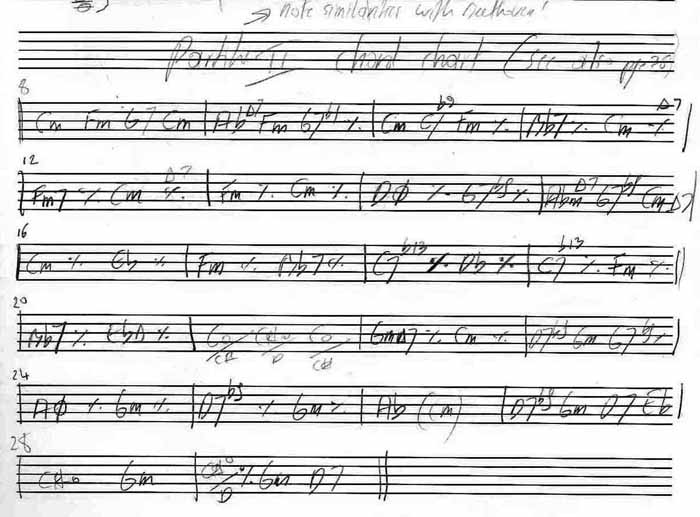 → note similarities with Beethoven!
Partita II chord chart (see also pp.78)
8
Cm Fm G7 Cm | Ab Δ7 Fm G7 b9 ٪ | Cm C7 b9 Fm ٪ | Bb7 ٪ Cm ٪ Δ7
12
Fm7 ٪ Cm ٪ Δ7 | Fm ٪ Cm ٪ | DØ ٪ G7 b9 ٪ | Abm Δ7 G7 b9 Cm Δ7
16
Cm ٪ Eb ٪ | Fm ٪ Bb7 ٪ | C7 b13 ٪ Db ٪ | C7 b13 ٪ Fm ٪
20
Bb7 ٪ EbΔ ٪ | Co/C# C#o/D Co/C# | GmΔ7 ٪ Cm ٪ | D7 b9 Gm G7 b9 ٪
24
AØ ٪ Gm ٪ | D7 b9 ٪ Gm ٪ | Ab (Cm) | D7 b9 Gm D7 Eb
28
C#o Gm | C#o/D ٪ Gm D7